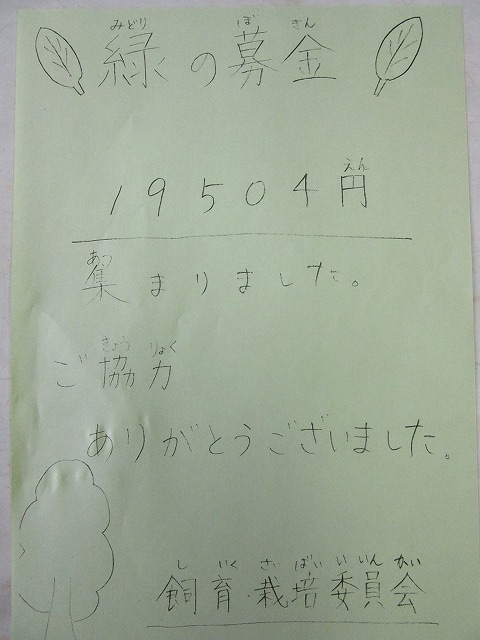 みどり ぼ きん
緑の募金
えん
19504円
あつ
集まりました。
きょう りょく
ご協力
ありがとうございました。
し いく さい ばい い いん かい
飼育・栽培委員会